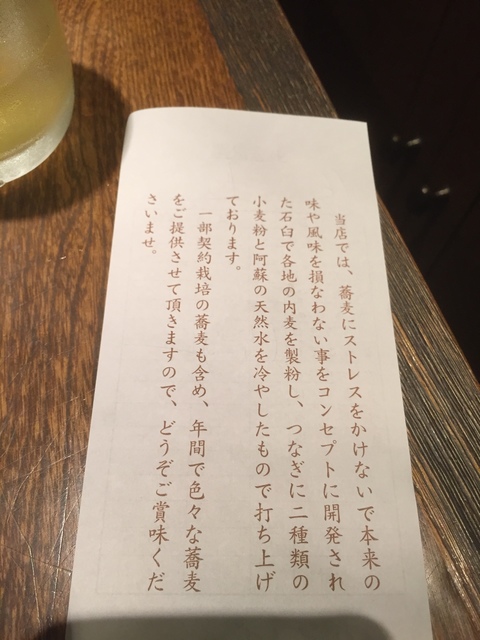 当店では、蕎麦にストレスをかけないで本来の
味や風味を損なわない事をコンセプトに開発され
た石臼で各地の内麦を製粉し、つなぎに二種類の
小麦粉と阿蘇の天然水を冷やしたもので打ち上げ
ております。
一部契約栽培の蕎麦も含め、年間で色々な蕎麦
をご提供させて頂きますので、どうぞご賞味くだ
さいませ。